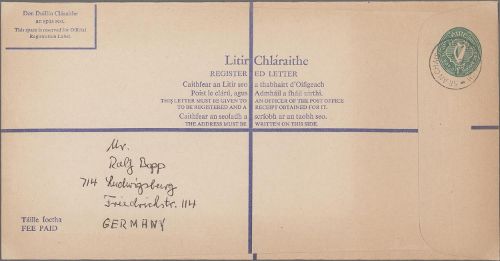 Don Duillín Cláraithe
an spás seo.
This space is reserved for Official
Registration Label.
Litir Chláraithe
REGISTERED LETTER
Caithfear an Litir seo a thabhairt d'Oifigeach
Poist le clárú, agus Admháil a fháil uirthi.
THIS LETTER MUST BE GIVEN TO AN OFFICER OF THE POST OFFICE
TO BE REGISTERED AND A RECEIPT OBTAINED FOR IT.
Caithfear an seoladh a scríobh ar an taobh seo.
THE ADDRESS MUST BE WRITTEN ON THIS SIDE.
Mr.
Ralf Bopp
714 Ludwigsburg
Friedrichstr. 114
GERMANY
Táille íoctha
FEE PAID